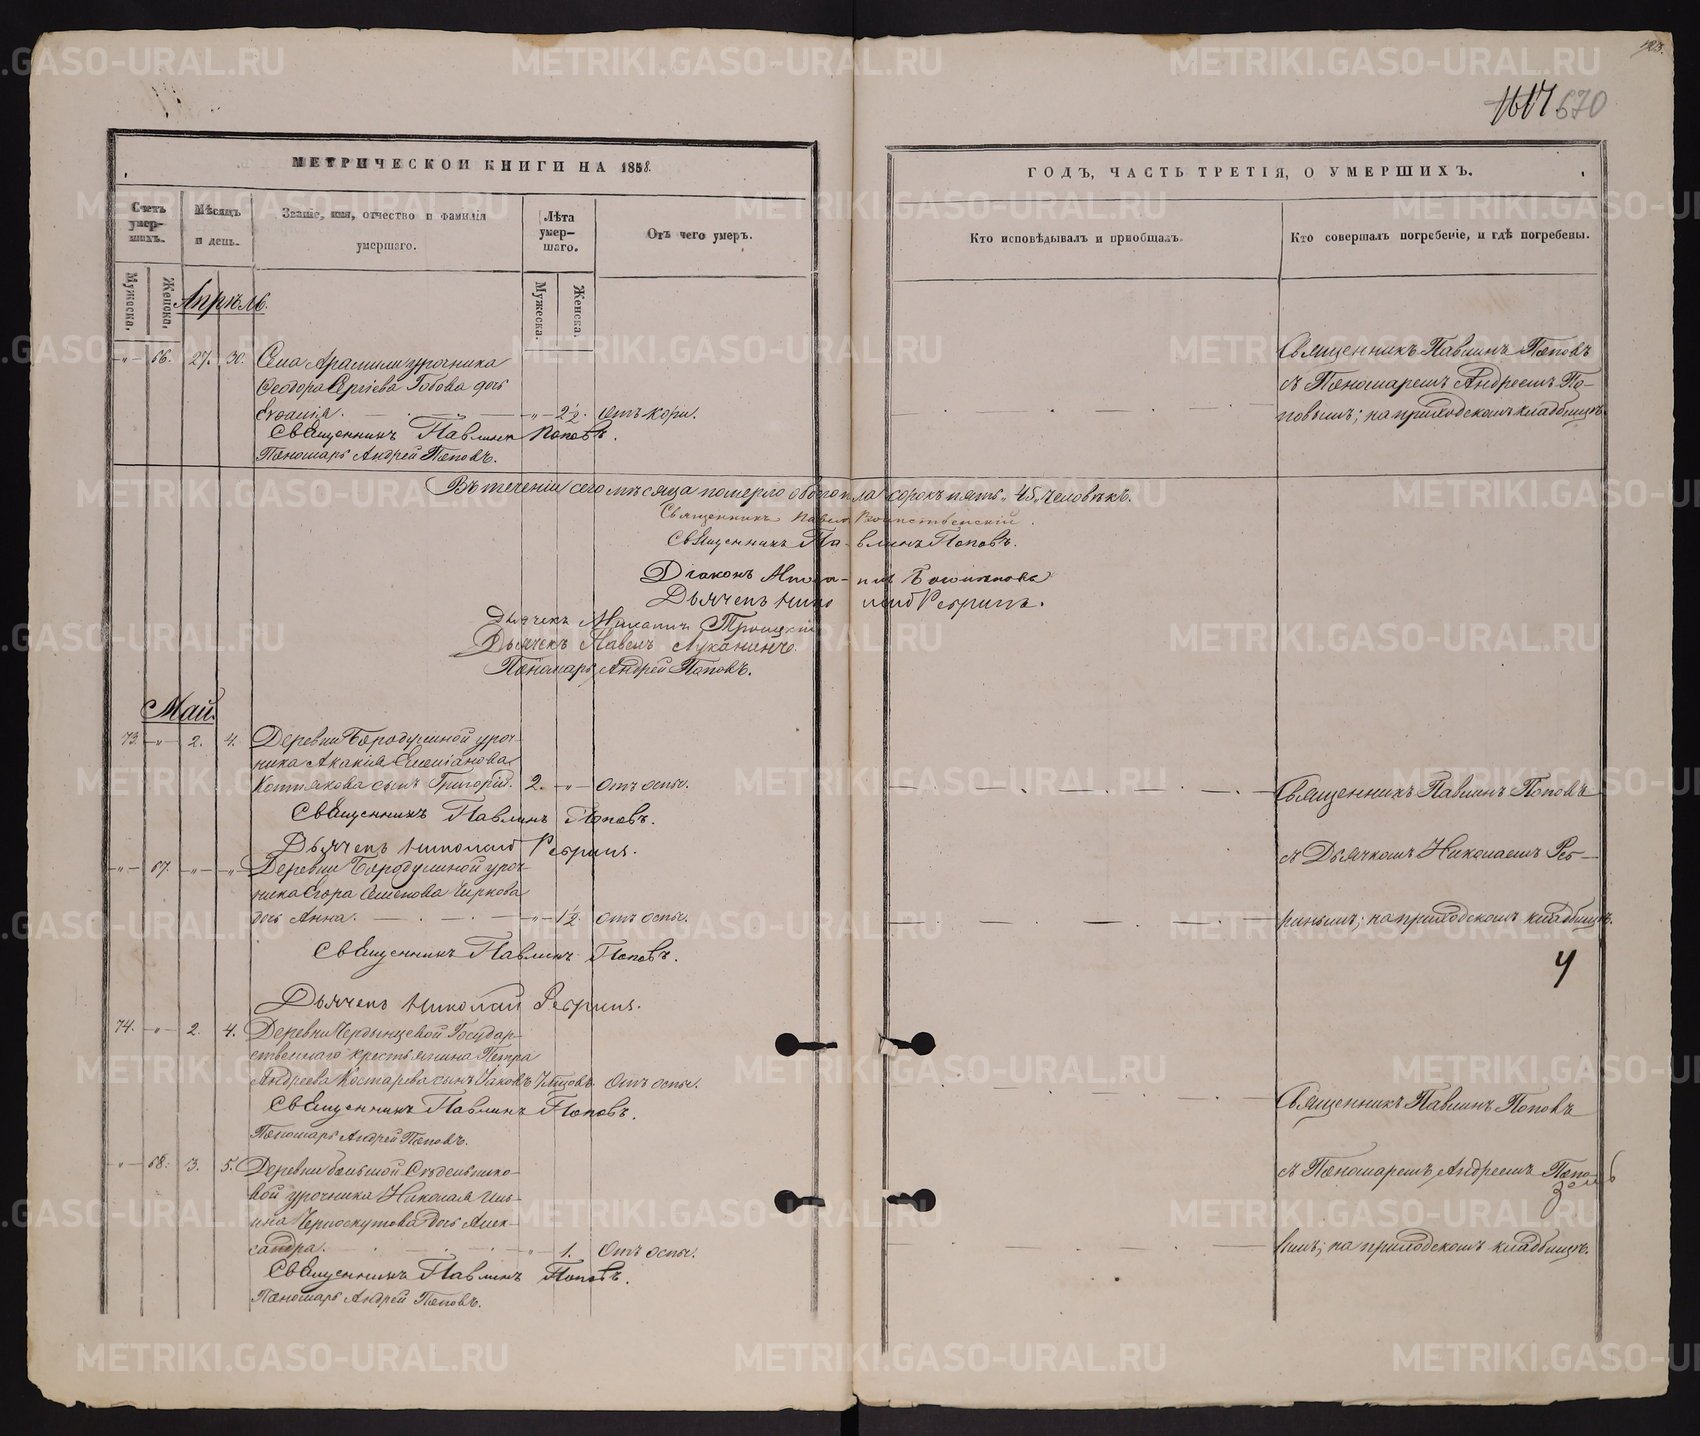 123.
1617 670
МЕТРИЧЕСКОЙ КНИГИ НА 1858.
ГОДЪ, ЧАСТЬ ТРЕТІЯ, О УМЕРШИХЪ.
Счетъ умер-шихъ.
Мѣсяцъ и день.
Званіе, имя, отчество и фамилія умершаго.
Лѣта умер-шаго.
Отъ чего умеръ.
Кто исповѣдывалъ и пріобщалъ.
Кто совершалъ погребеніе, и гдѣ погребены.
Мужеска.
Женска.
Мужеска.
Женска.
Апрѣль.
-"- 66. 27. 30. Села Арамили урочника
Ѳеодора Сергіева Гобова дочь
-"- 2½. Отъ кори.
Священникъ Павлинъ Поповъ.
Пономарь Андрей Поповъ.
Священникъ Павлинъ Поповъ
съ Пономаремъ Андреемъ По-
повымъ; на приходскомъ кладбищѣ.
Въ теченіи сего мѣсяца померло обоего пола сорокъ пять "45" человѣкъ.
Священникъ Павелъ
Священникъ Павлинъ Поповъ.
Діаконъ
Дьячекъ Николай Ребринъ.
Дьячекъ Михаилъ Троицкій
Дьячекъ Павелъ Луканинъ.
Пономарь Андрей Поповъ.
Май.
73. -"- 2. 4. Деревни Бородулиной уроч-
ника Акакія Емеліанова
Котлякова сынъ Григорій. 2. -"- Отъ оспы.
Священникъ Павлинъ Поповъ.
Дьячекъ Николай Ребринъ.
Священникъ Павлинъ Поповъ
съ Дьячкомъ Николаемъ Реб-
ринымъ; на приходскомъ кладбищѣ.
-"- 67. -"- -"- Деревни Бородулиной уроч-
ника Егора Семенова Чиркова
дочь Анна. -"- 1½ Отъ оспы.
Священникъ Павлинъ Поповъ.
Дьячекъ Николай Ребринъ.
4
74. -"- 2. 4. Деревни Чердынцевой Государ-
ственнаго крестьянина Петра
Андреева Костарева сынъ Іаковъ Отъ оспы.
Священникъ Павлинъ Поповъ.
Пономарь Андрей Поповъ.
Священникъ Павлинъ Поповъ
съ Пономаремъ Андреемъ Попо-
вымъ; на приходскомъ кладбищѣ.
-"- 68. 3. 5. Деревни большой Сѣдельнико-
вой урочника Николая Иль-
ина Черноскутова дочь Алек-
сандра. -"- 1. Отъ оспы.
Священникъ Павлинъ Поповъ.
Пономарь Андрей Поповъ.
METRIKI.GASO-URAL.RU